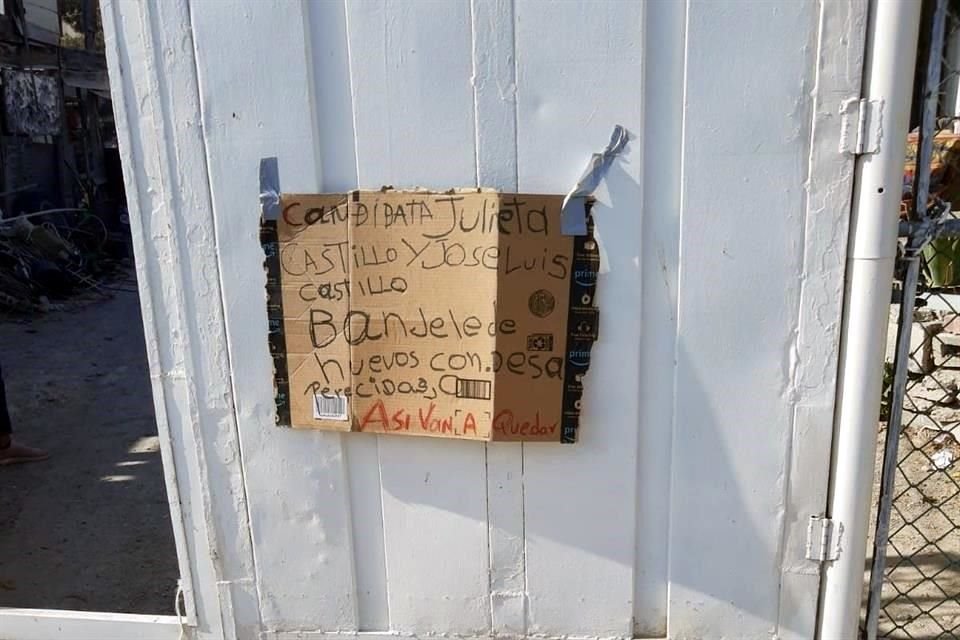 CANDIDATA Julieta
CASTILLO Y JOSE LUIS
CASTILLO
BanJele de
huevos con Desa
Perecidas
ASI VAN A Quedar
prime
prime